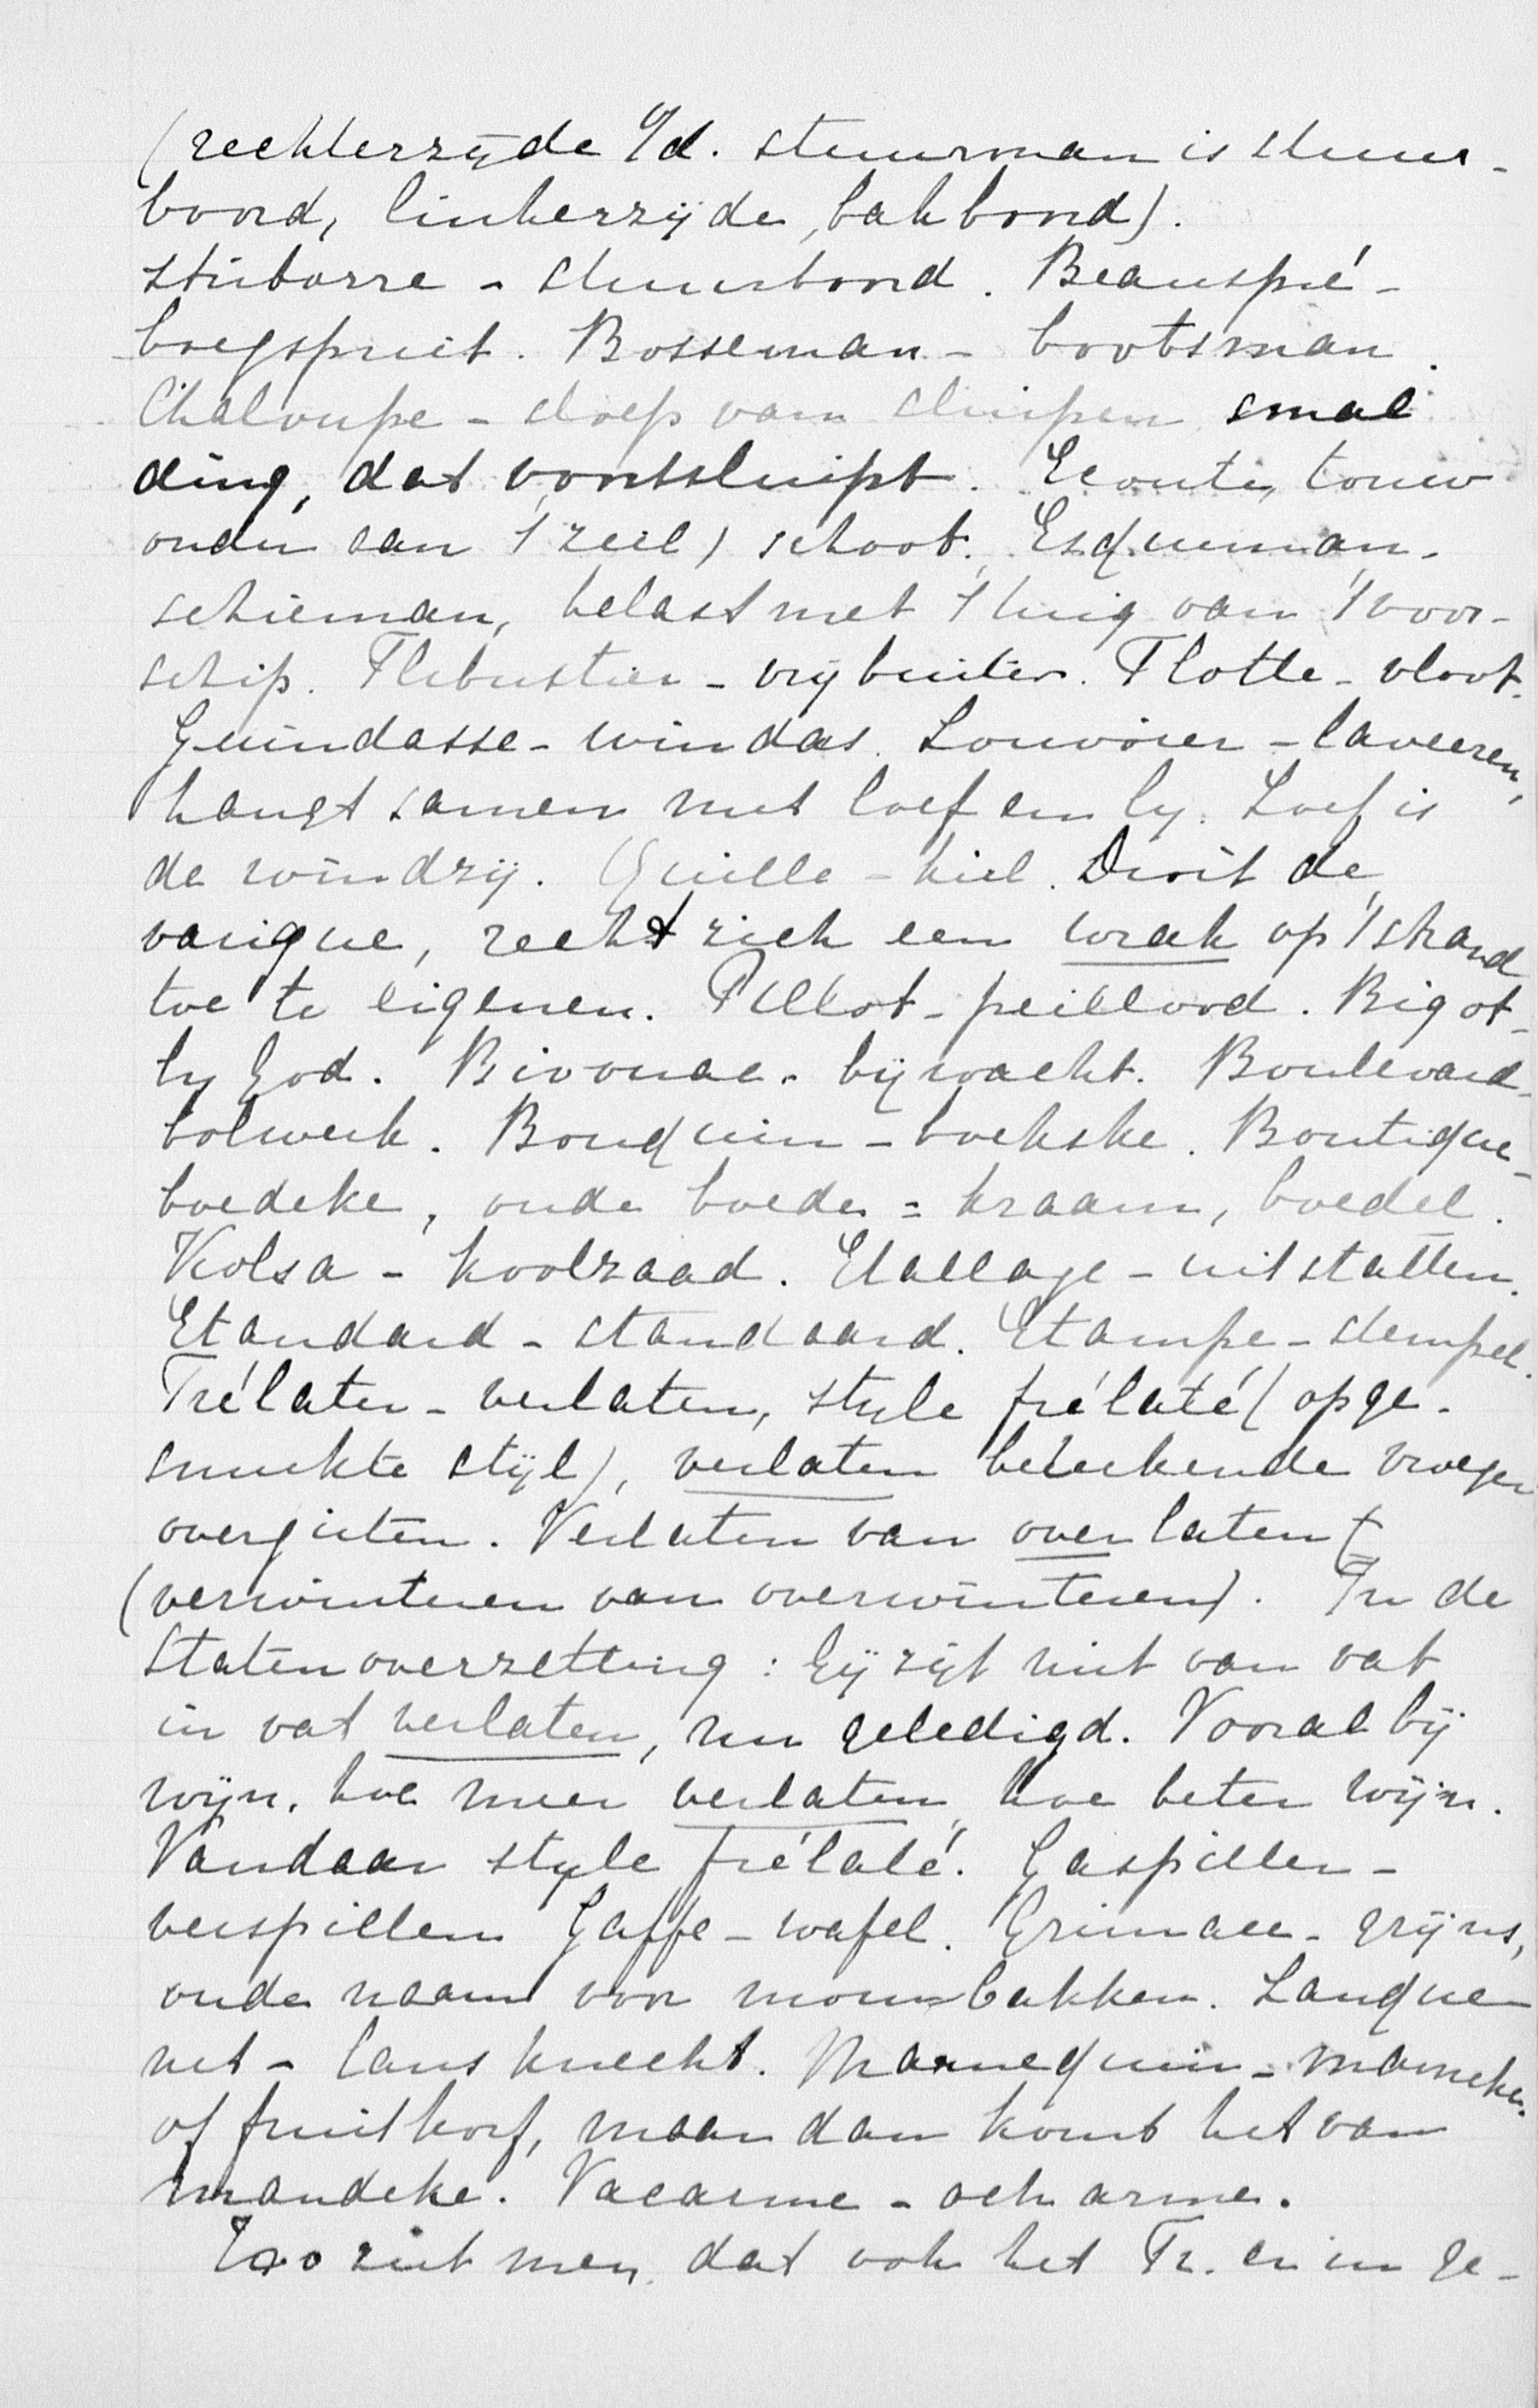 (rechterzijde v/d. stuurman is stuur-
boord, linkerzijde, bakboord).
Stribarre - stuurboord. Beauspré -
boegspriet. Bosseman - bootsman.
Chaloupe - sloep van sluipen smal
ding, dat voortsluipt. Ecoute, touw
onder aan 't zeil) schoot. Esqueman -
schieman, belast met 't tuig van 't voor-
schip. Flibustier - vrijbuiter. Flotte - vloot.
Guindasse - windas. Louvoier - laveeren,
hangt samen met loef en ly. Loef is
de windzij. Quille - kiel. Droit de
varique, recht zich een wrak op 't strand
toe te eigenen. Pillot - peillood. Bigot -
by God. Bivouac - bijwacht. Boulevard -
bolwerk. Bouquin - boekske. Boutique -
boedeke, oude boede = kraam, boedel.
Kolsa - koolzaad. Etallage - uitstallen.
Etandard - standaard. Etampe - stempel.
Frélater - verlaten, style frélaté (opge-
smukte stijl), verlaten beteekende vroeger
overgieten. Verlaten van overlaten (
(verwinteren van overwinteren). In de
Statenoverzetting: Gij zijt niet van vat
in vat verlaten, nu geledigd. Vooral bij
wijn, hoe meer verlaten, hoe beter wijn.
Vandaar style frélaté. Gaspiller -
verspillen Gaffe - wafel. Grimace - grijns,
oude naam voor mombakken. Lanque
net - lansknecht. Mannequin - manneken.
of fruitkorf, maar dan komt het van
mandeke. Vacarme - och arme.
Zoo ziet men dat ook het Fr. er in ge-